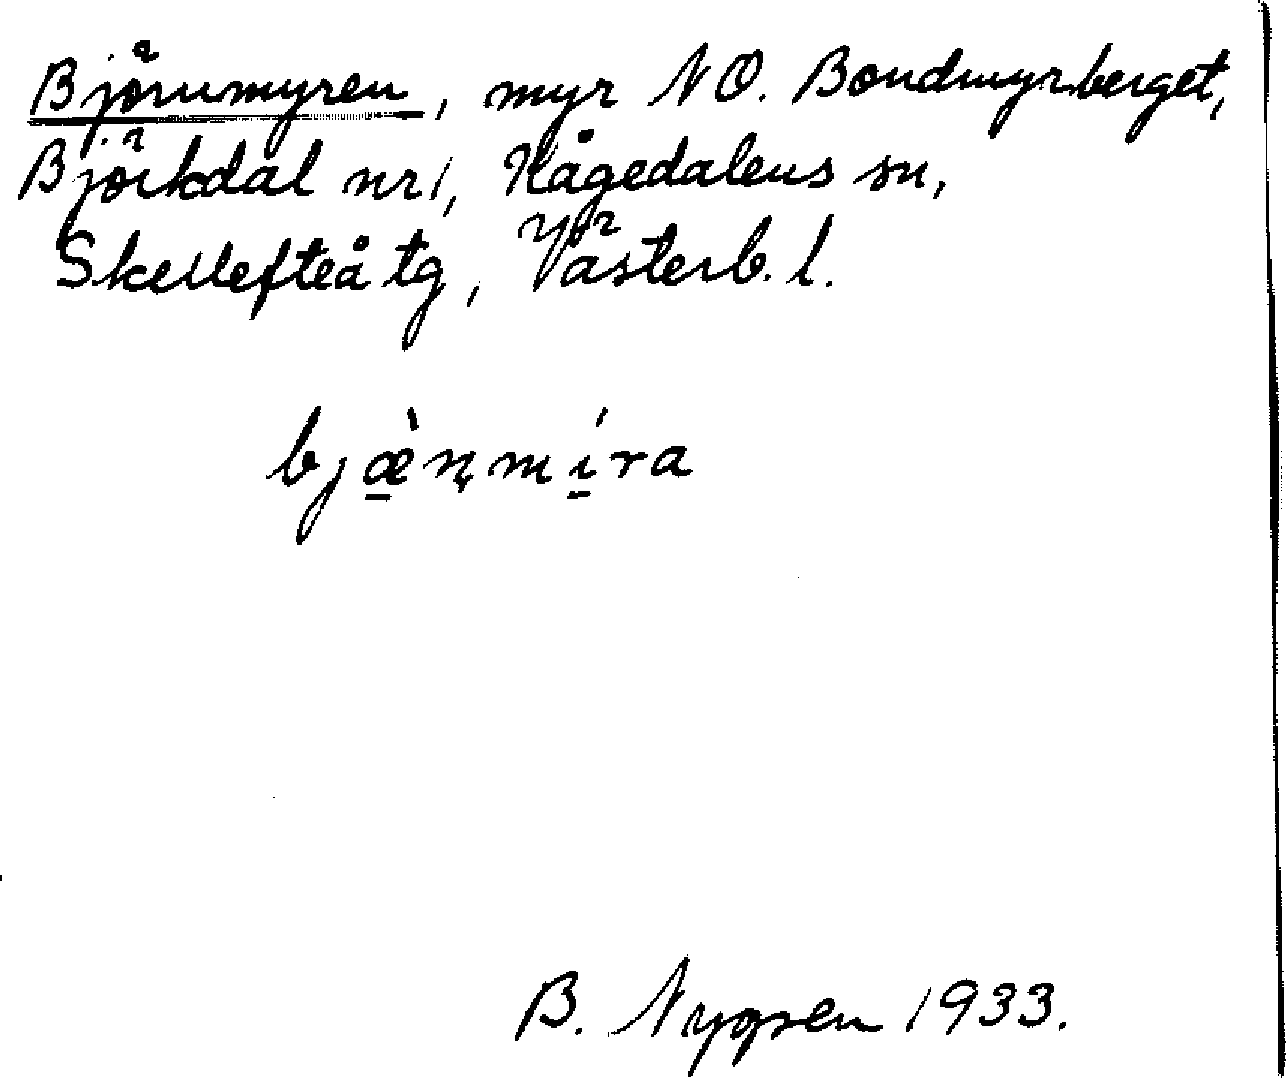 Björnmyren, myr NO. Bondmyrberget,
Björkdal nr 1, Kågedalens sn,
Skellefteå tg, Västerb. l.
bjæ̱̀ṇmí̱ra
B. 1933.